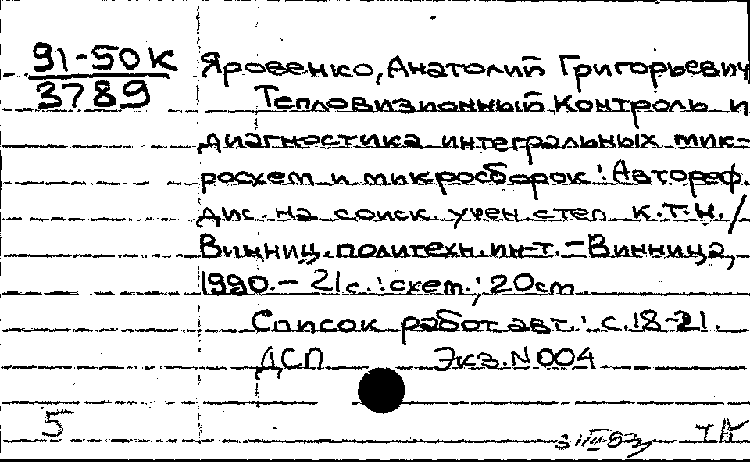 91-50К
3789
Яровенко, Анатолий Григорьевич
Тепловизионный контроль и
диагностика интегральных мик-
росхем и микросборок : Автореф.
дис. на соиск. учен. степ. к.т.н. /
Винниц. политехн. ин-т. – Винница,
1990. – 21 с. : схем. ; 20 см
Список работ авт. : с. 18-21.
ДСП Экз. N 004
5